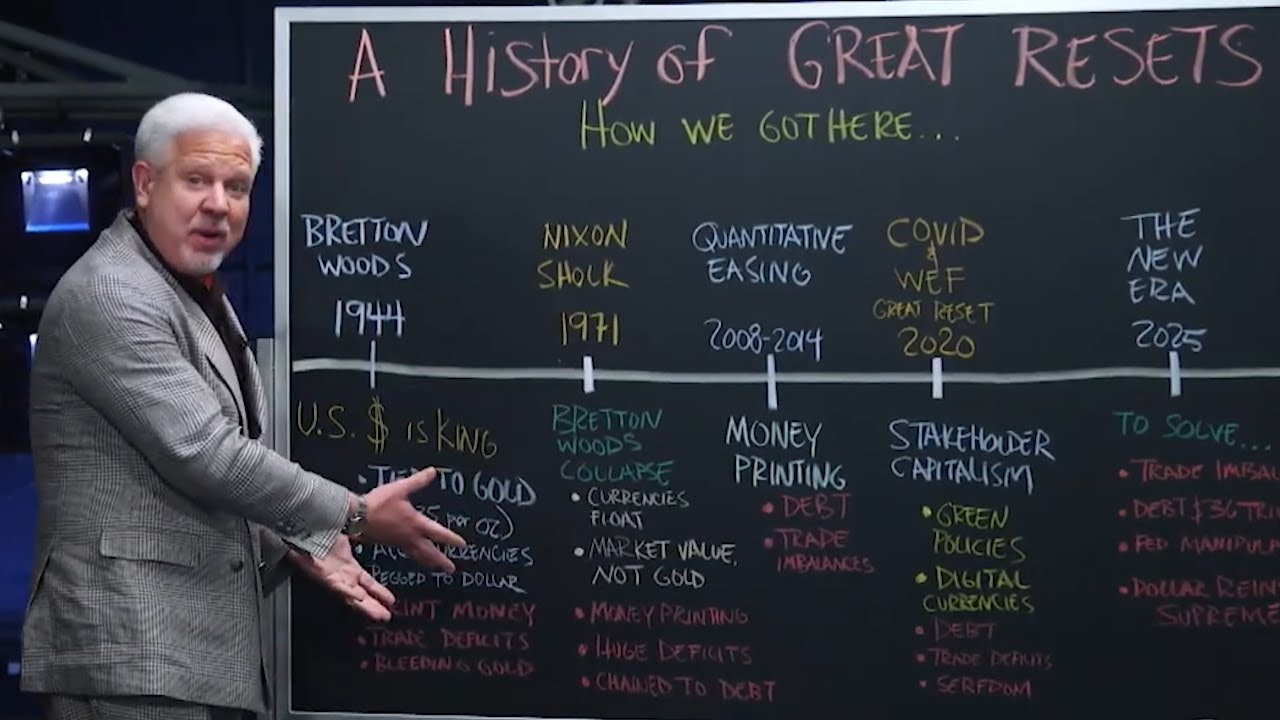 A HISTORY OF GREAT RESETS
HOW WE GOT HERE...
BRETTON
WOODS
1944
U.S. $ IS KING
• TIED TO GOLD
PER OZ)
CURRENCIES
PEGGED TO DOLLAR
PRINT MONEY
• TRADE DEFICITS
• BLEEDING GOLD
NIXON
SHOCK
1971
BRETTON
WOODS
COLLAPSE
• CURRENCIES
FLOAT
• MARKET VALUE,
NOT GOLD
• MONEY PRINTING
• HUGE DEFICITS
• CHAINED TO DEBT
QUANTITATIVE
EASING
2008-2014
MONEY
PRINTING
• DEBT
• TRADE
IMBALANCES
COVID
&
WEF
GREAT RESET
2020
STAKEHOLDER
CAPITALISM
• GREEN
POLICIES
• DIGITAL
CURRENCIES
• DEBT
• TRADE DEFICITS
• SERFDOM
THE
NEW
ERA
2025
TO SOLVE...
• TRADE IMBAL
• DEBT $36 TRI
• FED MANIPULA
• DOLLAR REIN
SUPREME